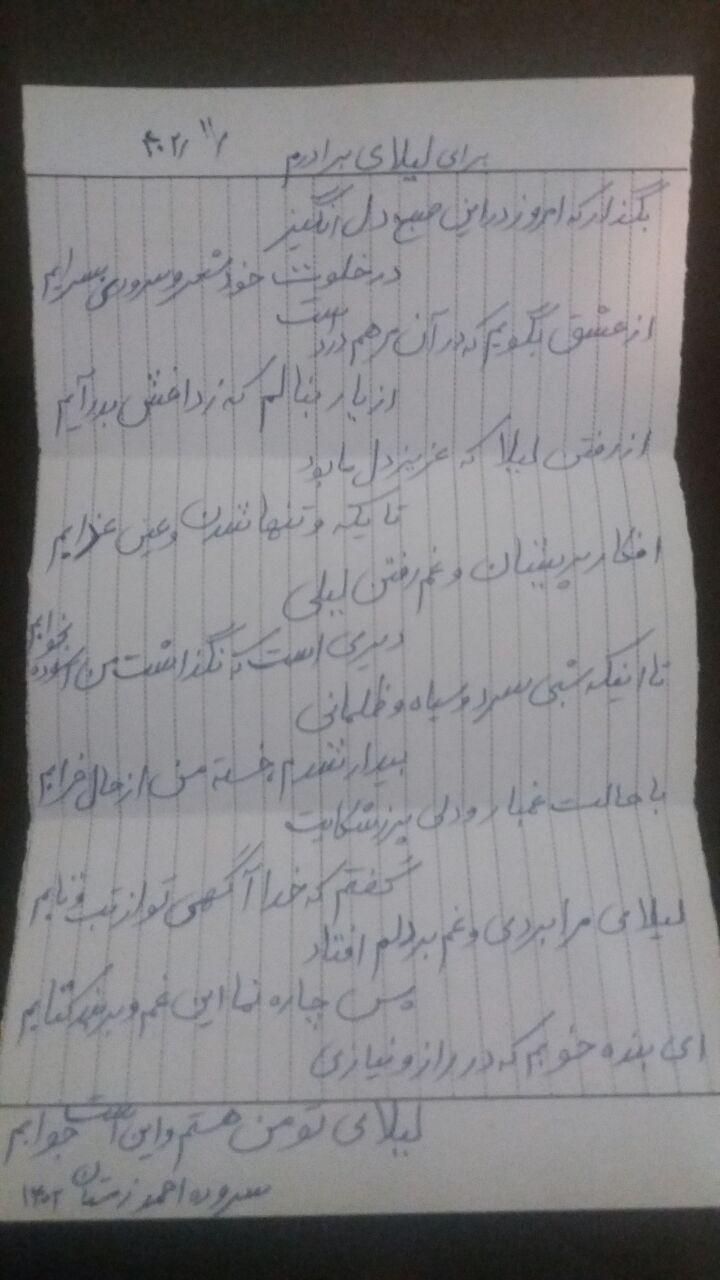 برای لیلای برادرم ۴۰۲٫۱۱٫۱
بگذار که امروز در این صبح دل انگیز
در خلوت خود شعر و سرودی بسرایم
از عشق بگویم که در آن مرهم درد است
از یار بنالم که ز داغش بدر آیم
از رفتن لیلا که عزیز دل ما بود
تا یکه و تنها شدن و عین عذابم
افکار پریشان و غم رفتن لیلی
دیری است که نگذاشت من آسوده بخوابم
تا اینکه شبی سرد و سیاه و ظلمانی
بیدار شدم خسته من از حال خرابم
با حالت غمبار و دلی پر ز شکایت
گفتم که خدا آگهی تو از تب و تابم
لیلای مرا بردی و غم بر دلم افتاد
پس چاره نما این غم و
ای بنده خوبم که در راز و نیازی
لیلای تو من هستم و این است جوابم
سروده احمد زمستان ۱۴۰۲